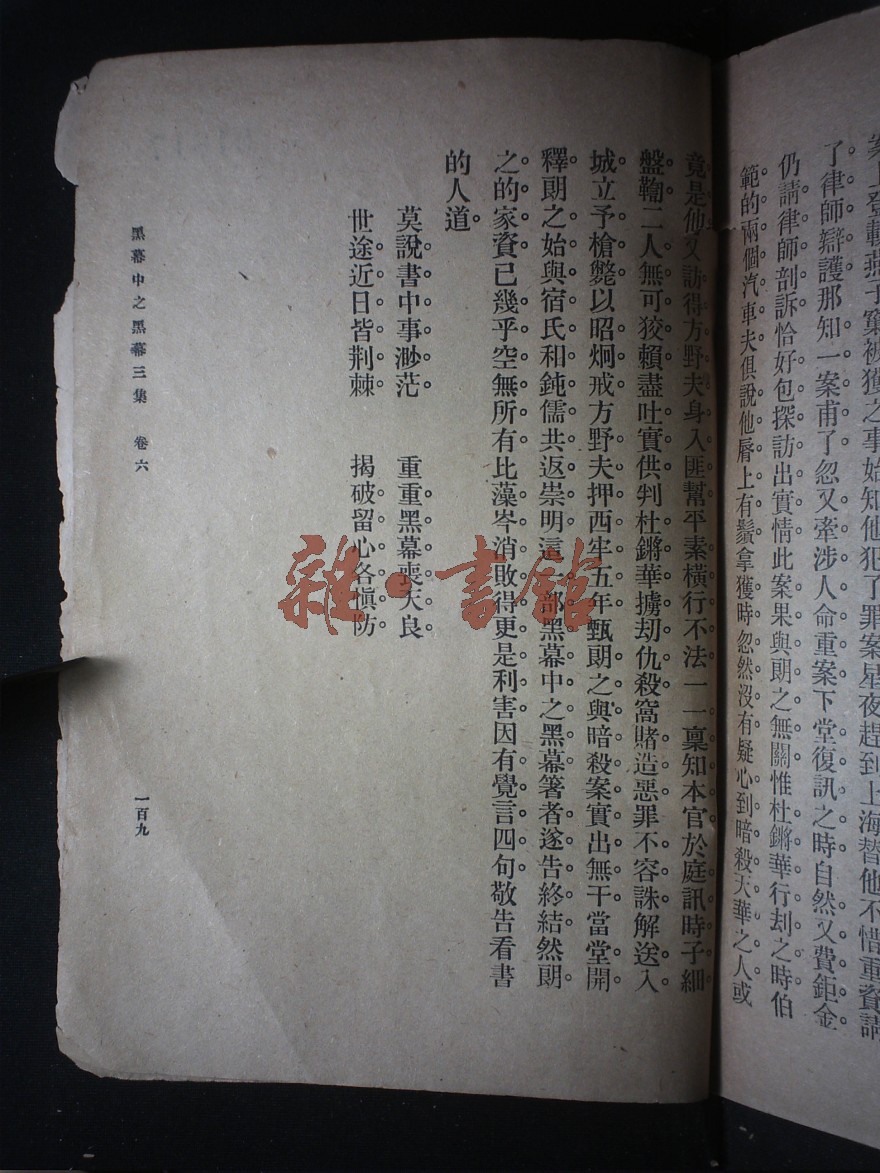 案上登載燕子窠被獲之事始知他犯了罪案星夜趕到上海替他不惜重資請
了律師辯護那知一案甫了忽又牽涉人命重案下堂復訊之時自然又費鉅金。
仍請律師剖訴恰好包探訪出實情此案果與朗之無關惟杜鏘華行刦之時伯
範的兩個汽車夫俱說他唇上有鬚拿獲時忽然沒有疑心到暗殺大華之人或
竟是他又訪得方野夫身入匪幫平素橫行不法一一稟知本官於庭訊時子細
盤鞫二人無可狡賴盡吐實供判杜鏘華擄刧仇殺窩賭造惡罪不容誅解送入
城立予槍斃以昭炯戒方野夫押西牢五年甄朗之與暗殺案實出無干當堂開
釋朗之始與宿氏和鈍儒共返崇明這一部黑幕中之黑幕箸者遂告終結然朗
之的家資已幾乎空無所有比藻岑消敗得更是利害因有覺言四句敬告看書
的人道。
莫說書中事渺茫。　重重黑幕喪天良。
世途近日皆荆棘　揭破留心各愼防
黑幕中之黑幕三集　卷六
一百九
雜·書館